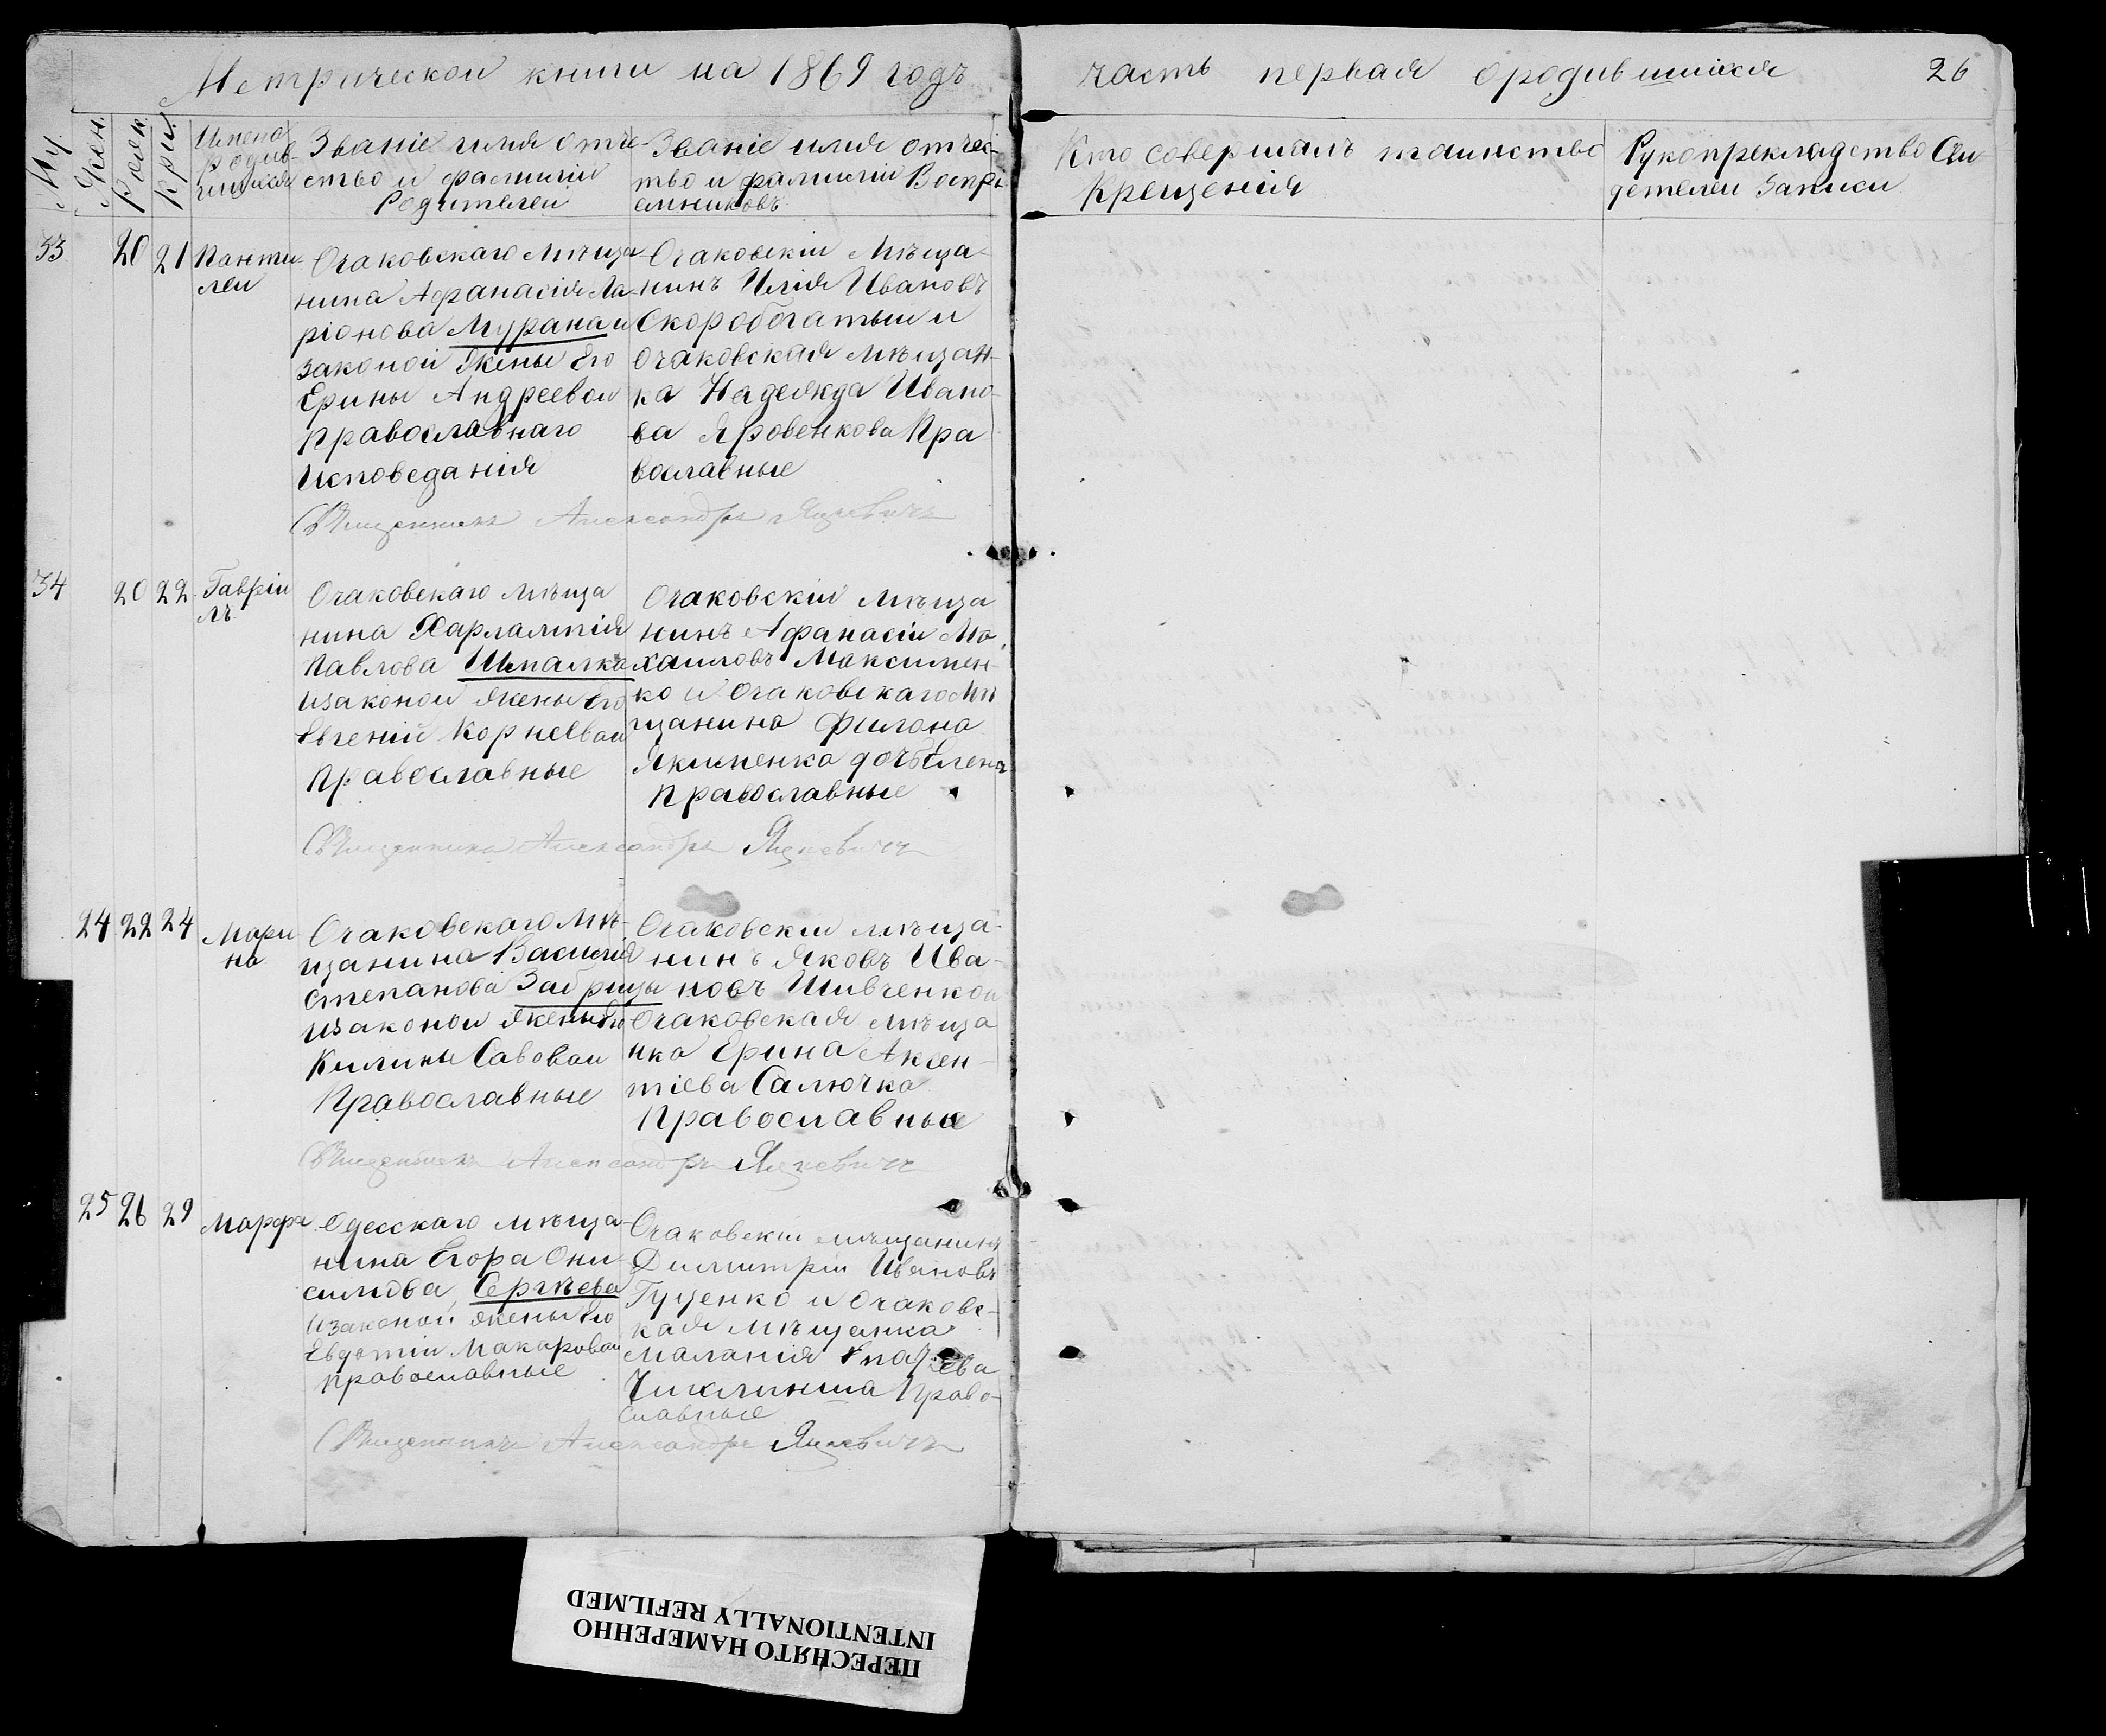 Метрической книги на 1869 годъ
часть первая ородившихся
26
Му.
Жен.
Рожд.
Кре.
Имена
Родив-
шихся
Званіе имя отче-
ство и фамиліи
Родителей
Званіе имя отчес-
тво и фамиліи Воспрі-
емниковъ
Кто совершалъ таинство
Крещенія
Рукоприкладство Сви
детелей Записи
33
20
21
Панти
леи
Очаковскаго мѣща
нина Афанасія Ла-
ріонова Мурана и
законой жены Его
Ерины Андреевои
Православнаго
Исповеданія
Очаковскіи Мѣща-
нинъ Илія Ивановъ
Скоробогатыи и
очаковская мѣщан-
ка Надежда Ивано-
ва Яровенкова Пра
вославные
Священникъ Александръ Яцкевичъ
34
20
22
Гавріи
лъ
Очаковскаго мѣща
нина Харлампія
Павлова Шпалка
изаконои жены Его
Евгеніи Корнеевои
Православные
Очаковскіи мѣща
нинъ Афанасіи Ми
хаиловъ Максимен-
ко и Очаковскаго Мѣ
щанина Филона
Якименка дочь Елена
православные
Священникъ Александръ Яцкевичъ
24
22
24
Мари
на
Очаковскаго мѣ-
щанина Василія
Степанова
изаконои жены Его
Килины Савовои
Православные
Очаковскіи мѣща-
нинъ Яковъ Ива-
новъ Шивченко и
Очаковская мѣща
нка Ерина Аксен-
тіева Салючка
Православные
Священникъ Александръ Яцкевичъ
25
26
29
Марфа
Одесскаго мѣща-
нина Егора Они-
симова Сергѣева
изаконои жены Его
Евдотіи Макаровои
православные
Очаковскіи мѣщанинъ
Димитріи Ивановъ
Гуценко и Очаковс-
кая мѣщанка
Маланія
Право-
славные
Священникъ Александръ Яцкевичъ
ПЕРЕСНЯТО НАМЕРЕННО
INTENTIONALLY REFILMED